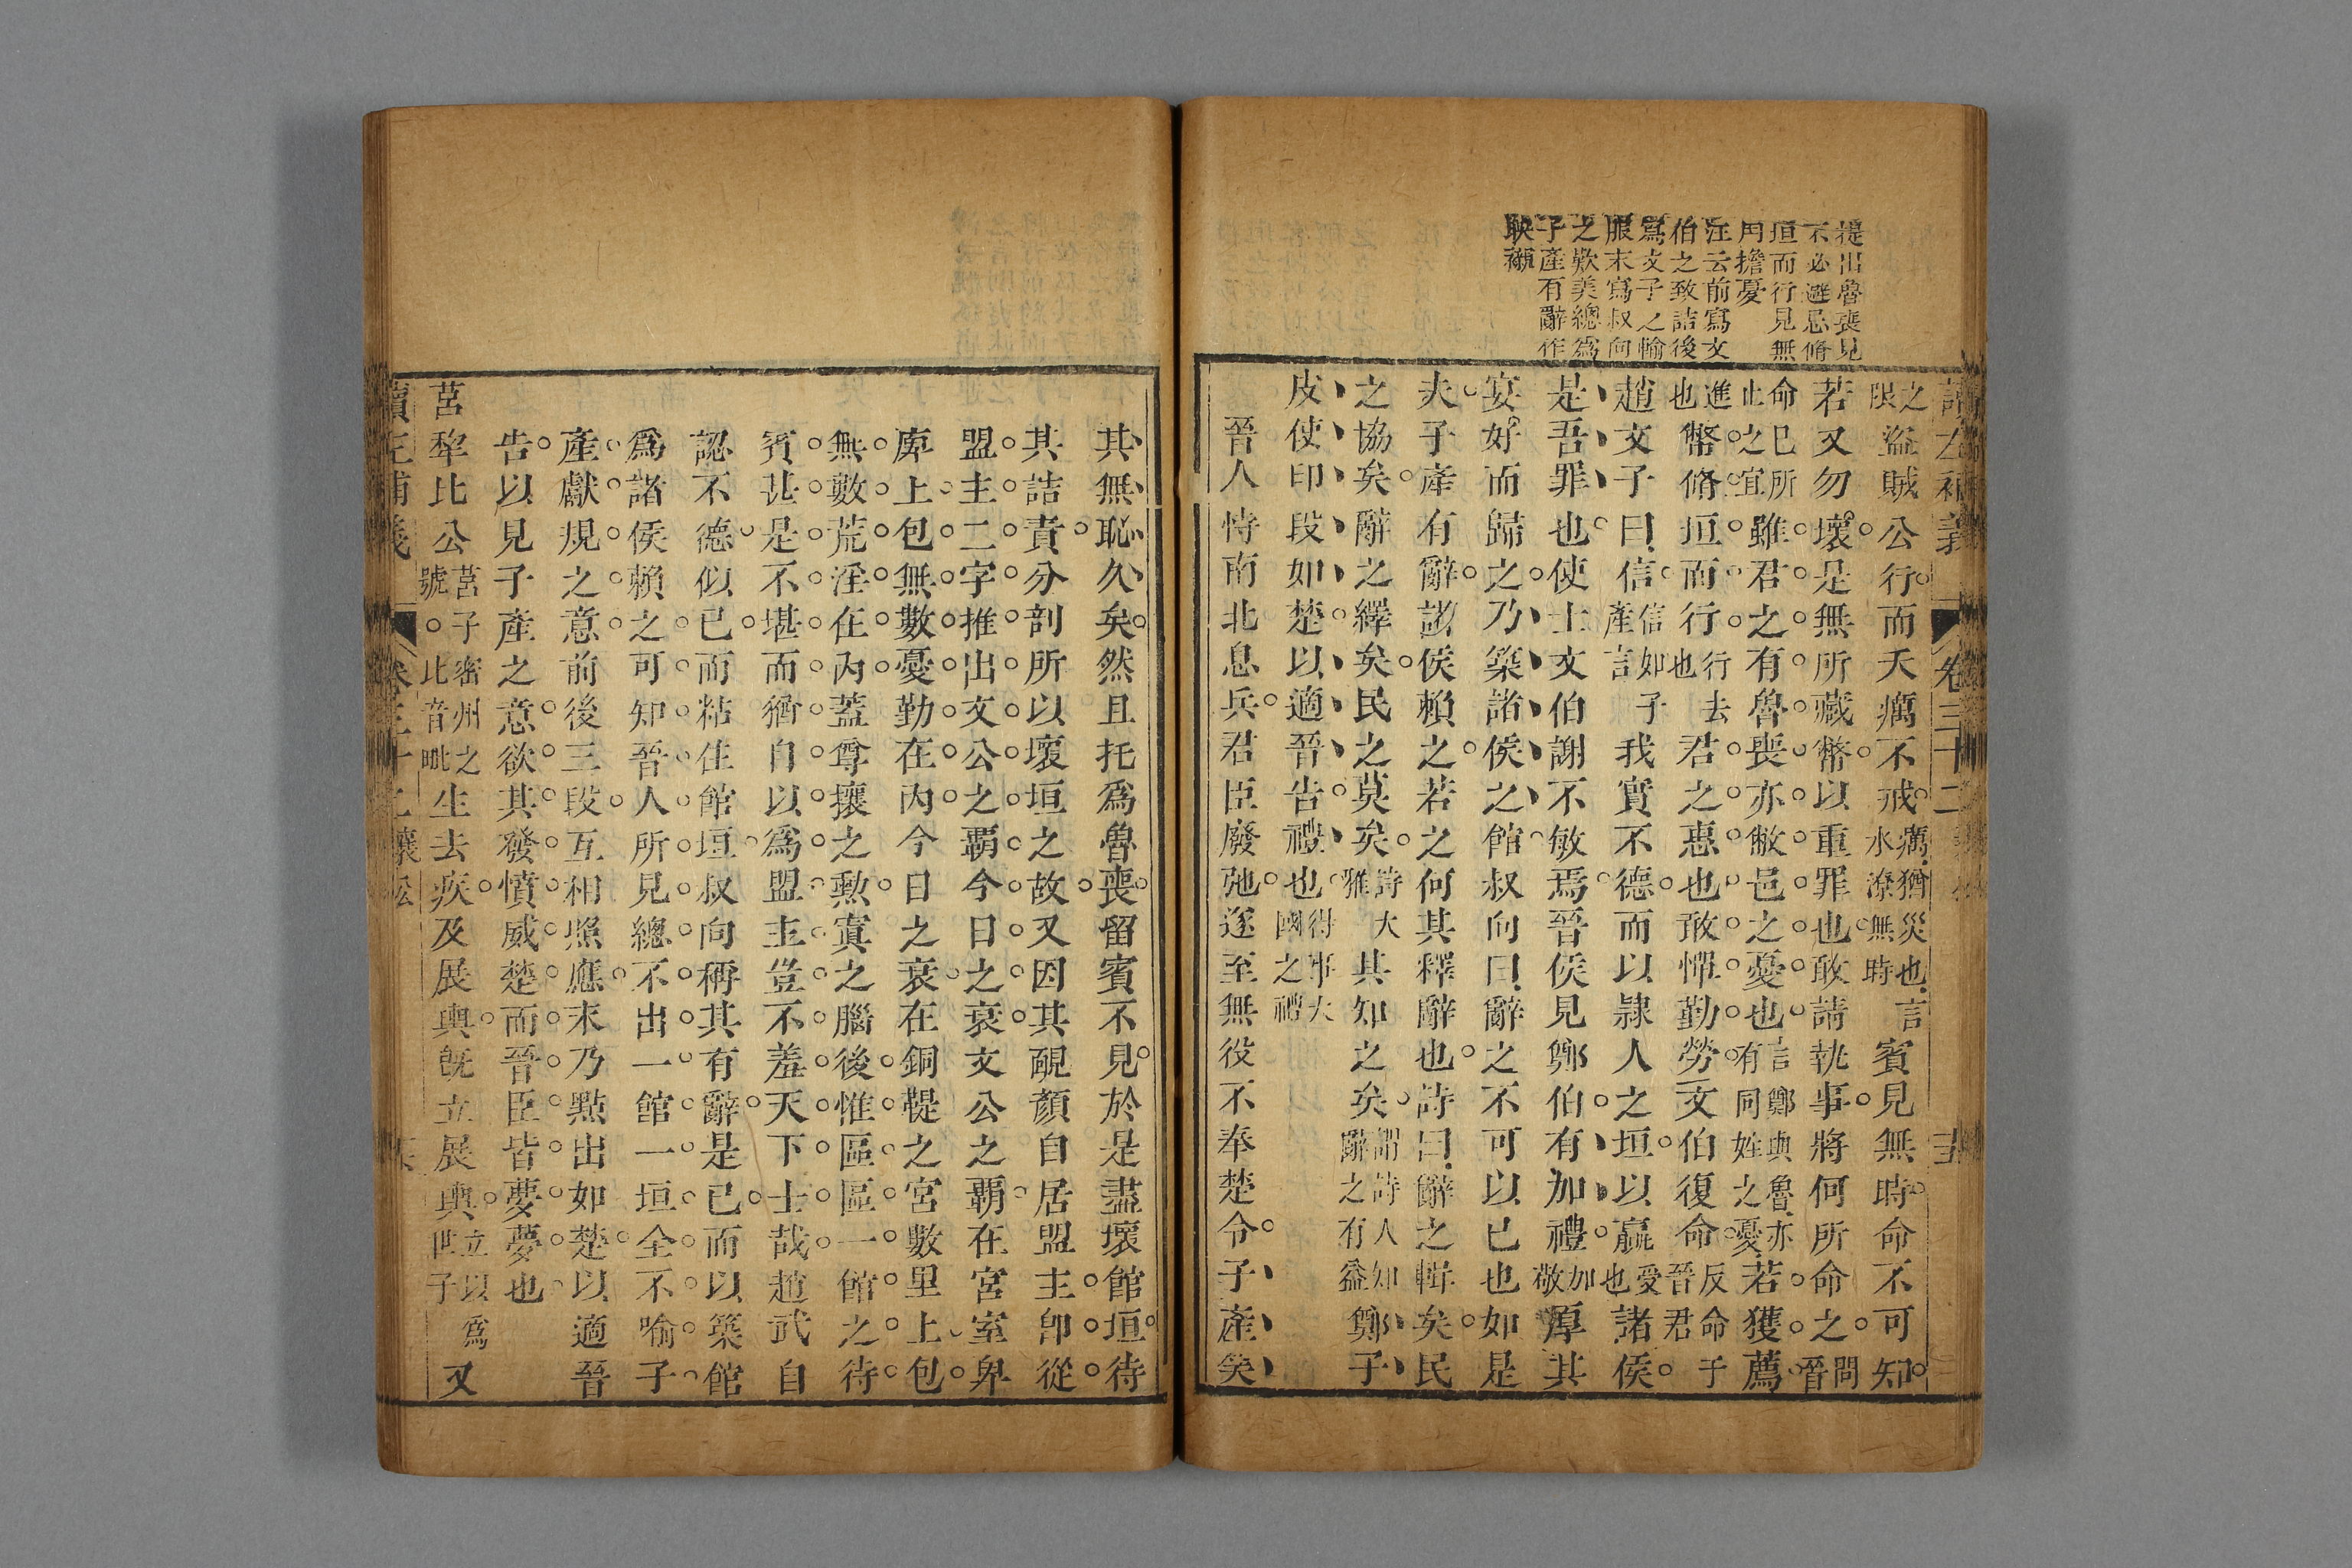 提出魯喪見
不必避忌脩
垣而行見無
用擔憂
注云前寫文
伯之致詰後
寫文子之輸
服末寫叔向
之歎美總爲
子產有辭作
映襯
讀左補義 卷三十二
之限盜賊公行而天癘不戒癘猶災也言水潦無時賓見無時命不可知
若又勿壞是無所藏幣以重罪也敢請執事將何所命之問晉
命已所止之宜雖君之有魯喪亦敝邑之憂也言鄭與魯亦有同姓之憂若獲薦
進也幣脩垣而行行去也君之惠也敢憚勤勞文伯復命反命于晉君
趙文子曰信信如子產言我實不德而以隸人之垣以贏受也諸侯
是吾罪也使士文伯謝不敏焉晉侯見鄭伯有加禮加敬厚其
宴好而歸之乃築諸侯之館叔向曰辭之不可以已也如是
夫子產有辭諸侯賴之若之何其釋辭也詩曰辭之輯矣民
之協矣辭之繹矣民之莫矣詩大雅其知之矣謂詩人知辭之有益鄭子
皮使印段如楚以適晉告禮也得事大國之禮
晉人恃南北息兵君臣廢弛遂至無役不奉楚令子產矣
其無恥久矣然且托爲魯喪留賓不見於是盡壞館垣待
其詰責分剖所以壞垣之故又因其靦顏自居盟主卽從
盟主二字推出文公之霸今日之衰文公之霸在宮室卑
庳上包無數憂勤在內今日之衰在銅鞮之宮數里上包
無數荒淫在內蓋尊攘之勲寘之腦後惟區區一館之待
賓甚是不堪而猶自以爲盟主豈不羞天下士哉趙武自
認不德似已而粘住館垣叔向稱其有辭是已而以築館
爲諸侯賴之可知晉人所見總不出一館一垣全不喻子
產獻規之意前後三段互相照應末乃點出如楚以適晉
告以見子產之意欲其發憤威楚而晉臣皆夢夢也
莒犂比公莒子密州之號○比音毗生去疾及展輿旣立展輿立以爲世子又